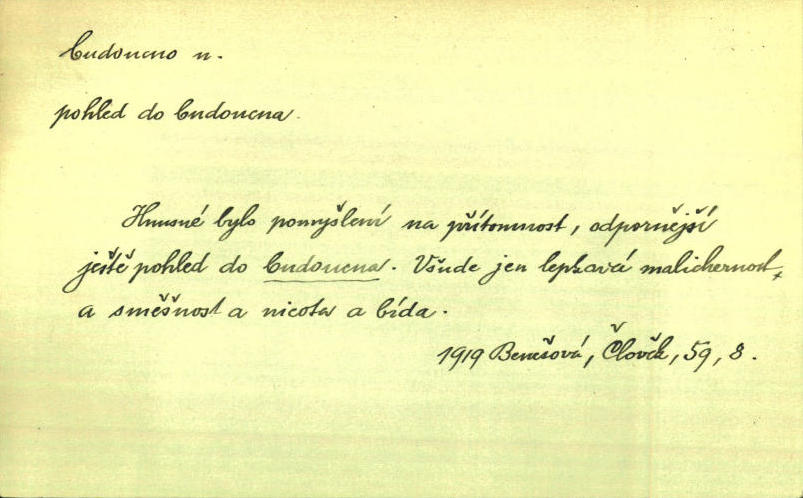 budoucno n.
pohled do budoucna.
Hnusné bylo pomyšlení na přítomnost, odpornější
ještě pohled do budoucna. Všude jen lepkavá malichernost
a směšnost a nicota a bída.
1919 Benešová, Člověk, 59, 8.